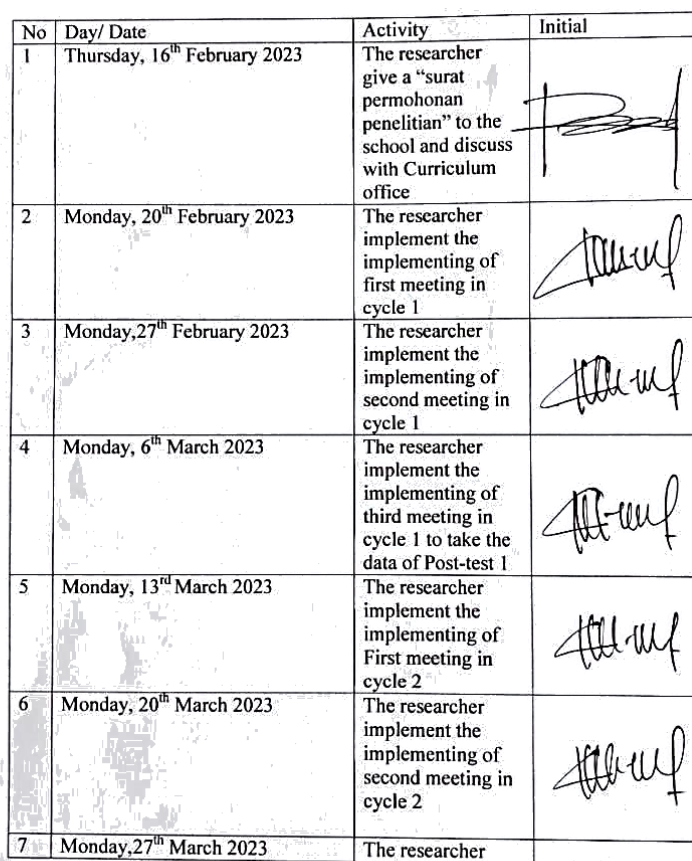 No Day/ Date Activity Initial
1 Thursday, 16th February 2023 The researcher
give a “surat
permohonan
penelitian” to the
school and discuss
with Curriculum
office
2 Monday, 20th February 2023 The researcher
implement the
implementing of
first meeting in
cycle 1
3 Monday,27th February 2023 The researcher
implement the
implementing of
second meeting in
cycle 1
4 Monday, 6th March 2023 The researcher
implement the
implementing of
third meeting in
cycle 1 to take the
data of Post-test 1
5 Monday, 13rd March 2023 The researcher
implement the
implementing of
First meeting in
cycle 2
6 Monday, 20th March 2023 The researcher
implement the
implementing of
second meeting in
cycle 2
7 Monday,27th March 2023 The researcher